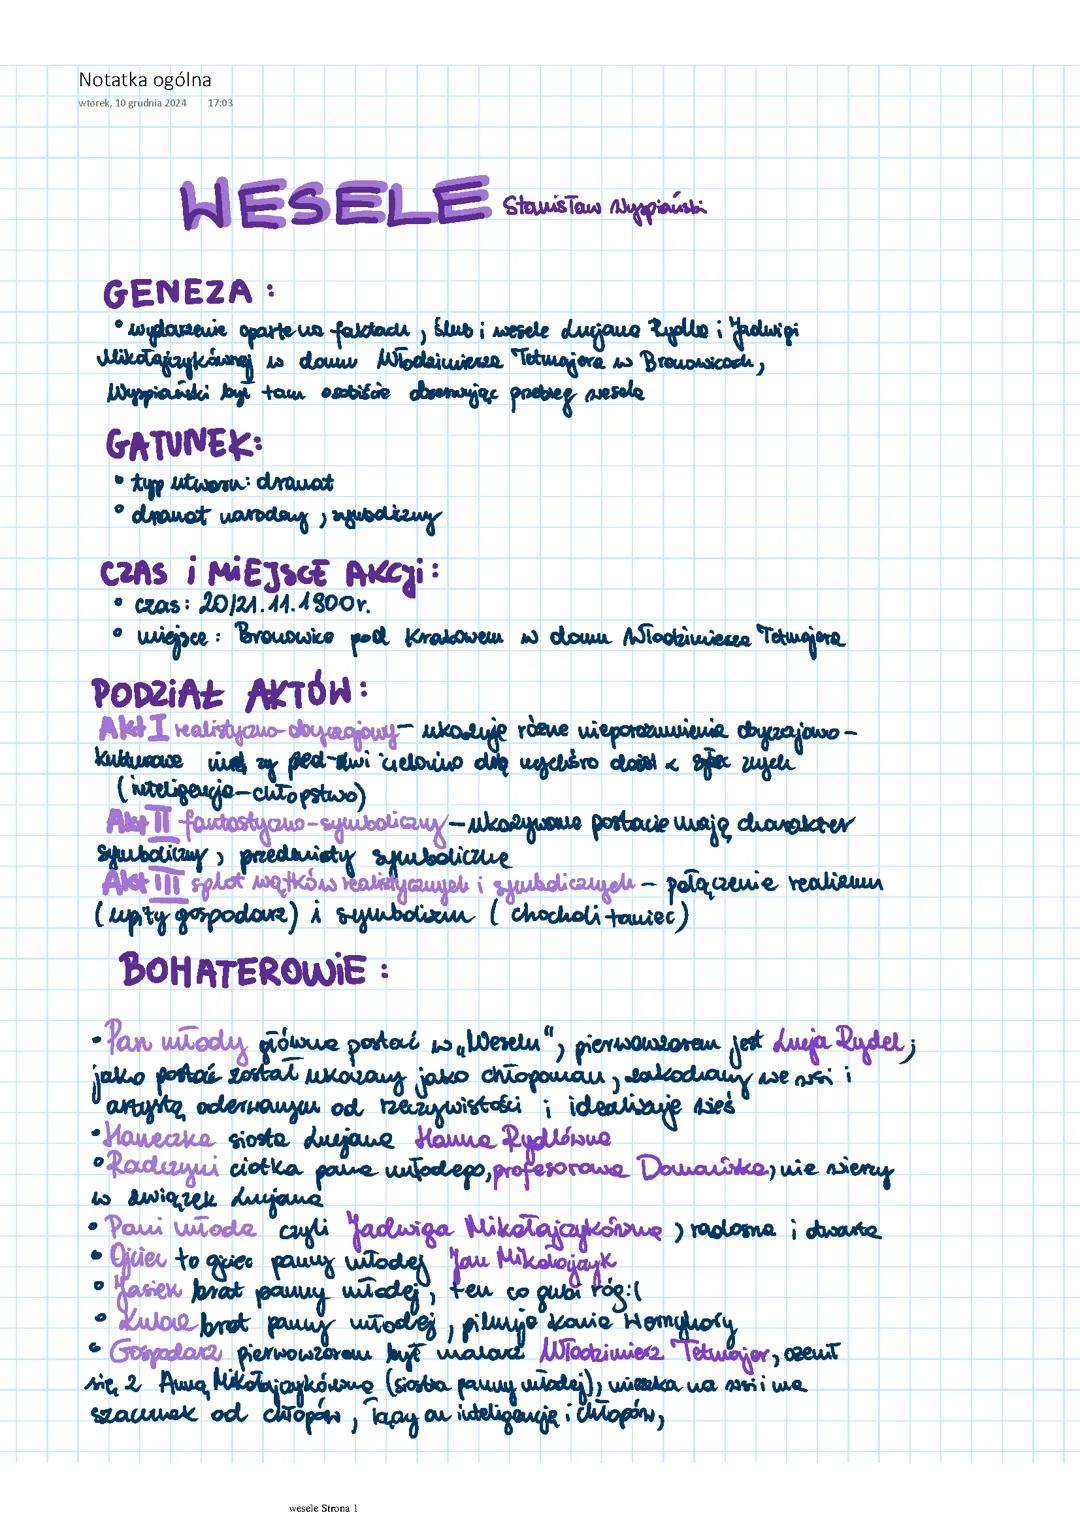 Notatka ogólna
wtorek, 10 grudnia 2024 17:03
WESELE Stanisław Wyspiański
GENEZA :
• wydarzenie oparte na faktach, ślub i wesele Lucjana Rydla i Jadwigi
Mikołajczykównej w domu Włodzimierza Tetmajera w Bronowicach,
Wyspiański był tam osobiście obserwując przebieg wesela
GATUNEK:
• typ utworu: dramat
• dramat narodowy, symboliczny
CZAS i MIEJSCE AKCji :
• czas: 20/21.11.1900r.
• miejsce: Bronowice pod Krakowem w domu Włodzimierza Tetmajera
PODZIAŁ AKTÓW :
Akt I realistyczno-obyczajowy - ukazuje różne nieporozumienia obyczajowo-
kulturowe
(inteligencja-chłopstwo)
Akt II fantastyczno-symboliczny - ukazywane postacie mają charakter
symboliczny, przedmioty symboliczne
Akt III splot wątków realistycznych i symbolicznych - połączenie realizmu
(upity gospodarz) i symbolizm (chocholi taniec)
BOHATEROWIE :
• Pan młody główna postać w „Weselu", pierwowzorem jest Lucja Rydel;
jako postać został ukazany jako chłopoman, zakochany we wsi i
artystą oderwanym od rzeczywistości i idealizuje wieś
• Haneczka siosta Lucjana Hanna Rydlówna
• Radczyni ciotka pana młodego, profesorowa Domańska, nie wierzy
w związek Lucjana
• Pani młoda czyli Jadwiga Mikołajczykówna, radosna i otwarta
• Ojciec to ojciec panny młodej Jan Mikołajczyk
• Jasiek brat panny młodej, ten co gubi róg:(
• Kuba brat panny młodej, pilnuje konia Wernyhory
• Gospodarz pierwowzorem był malarz Włodzimierz Tetmajer, ożenił
się z Anną Mikołajczykówną (siostra panny młodej), mieszka na wsi i ma
szacunek od chłopów, łączy on inteligencję i chłopów,
wesele Strona 1